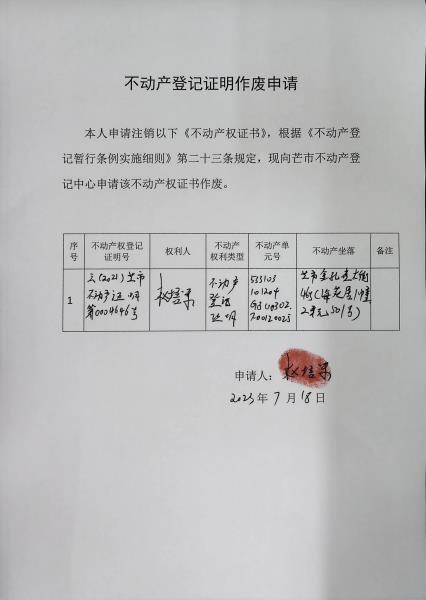 不动产登记证明作废申请
本人申请注销以下《不动产权证书》，根据《不动产登
记暂行条例实施细则》第二十三条规定，现向芒市不动产登
记中心申请该不动产权证书作废。
序号 不动产权登记证明号 权利人 不动产权利类型 不动产单元号 不动产坐落 备注
1 云(2021)芒市不动产证明第0004646号 赵培 不动产登记证明 533103 101204 芒市 大街 2单元501号)
申请人： 赵培
2023年7月18日